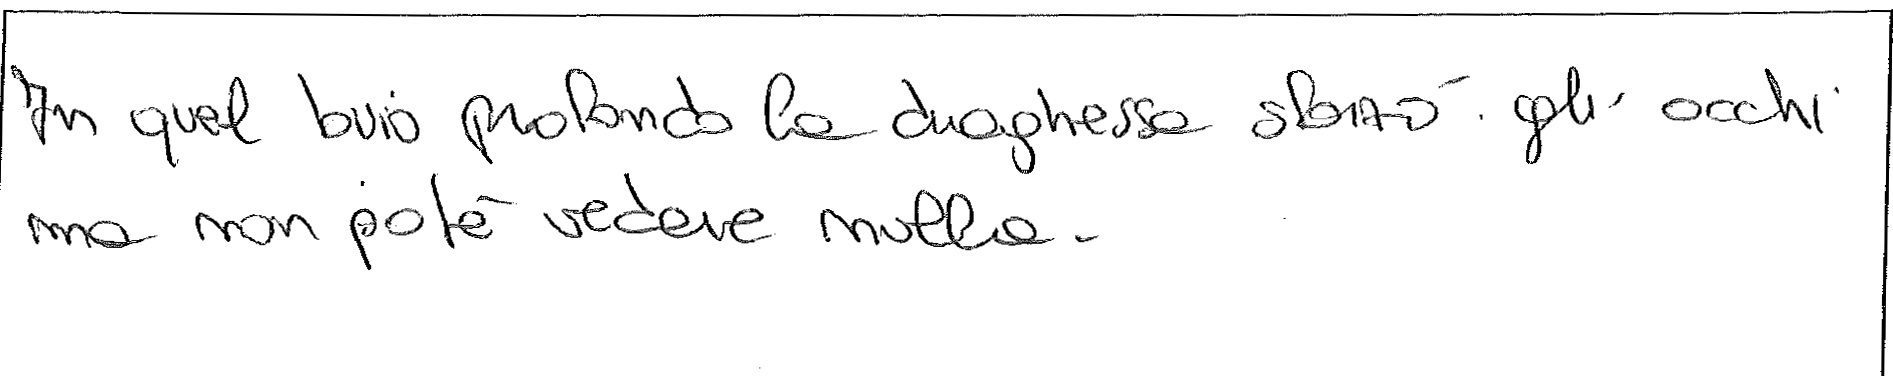 In quel buio profondo la draghessa sbarrò gli occhi
ma non poté vedere nulla.